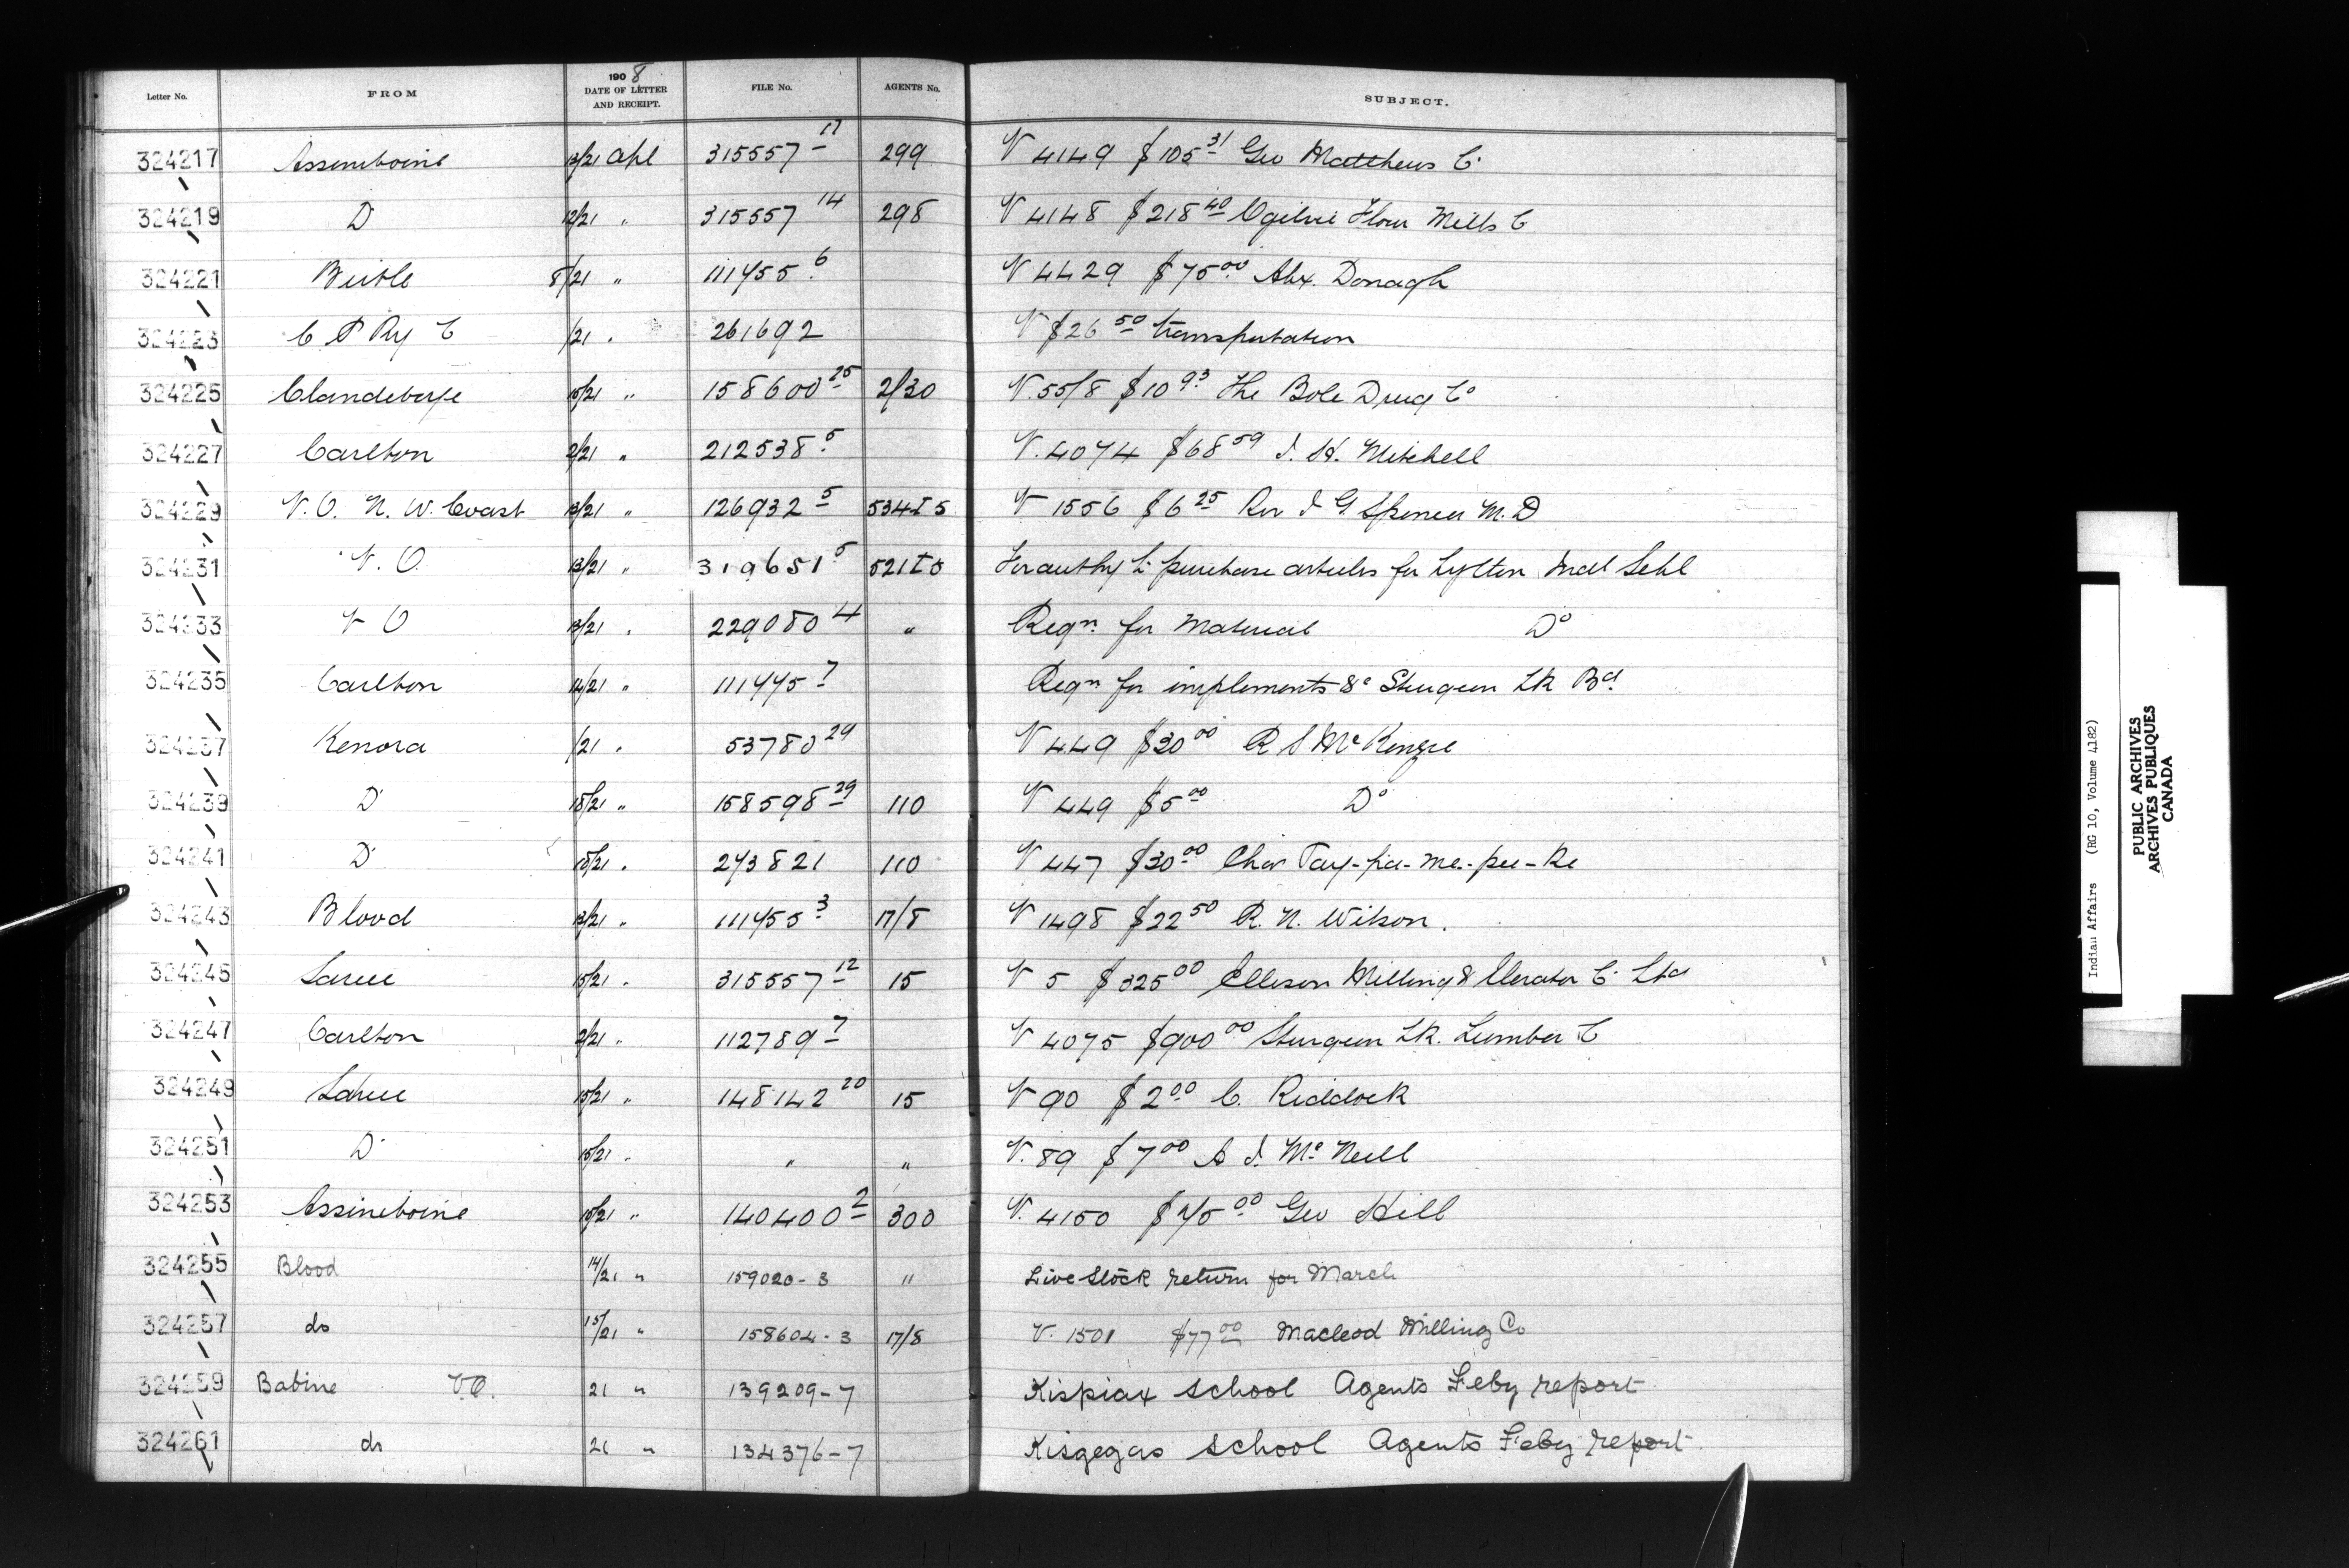 Letter No. FROM 1908 DATE OF LETTER AND RECEIPT. FILE No. AGENTS No. SUBJECT.
324217 Assiniboine 13/21 Apl 315557 17 299 V 4149 $105 31 Geo Matthews C
324219 Do 12/21 " 315557 14 298 V 4148 $218 40 Ogilvie Flour Mills C
324221 Birtle 8/21 " 111455 6 V 4429 $75 00 Alex. Donagh
324223 C P Ry C /21 " 261692 V $26 50 transportation
324225 Clandeboye 15/21 " 158600 25 2/30 V. 55/8 $10 93 The Bole Drug Co
324227 Carlton 2/21 " 212538 5 V. 4074 $68 59 J. H. Mitchell
324229 V. O. N. W. Coast 13/21 " 126932 5 534I5 V 1556 $6 25 Rev J G Spencer M. D
324231 V. O. 13/21 " 319651 5 521I5 For authy to purchase articles for Lytton Indl Schl
324233 V O 13/21 " 229080 4 " Reqn for Material Do
324235 Carlton 14/21 " 111445 7 Reqn for implements &c Sturgeon Lk Bd
324237 Kenora /21 " 53780 29 V 449 $30 00 R S McKenzie
324239 Do 18/21 " 158598 29 110 V 449 $5 00 Do
324241 Do 18/21 " 243821 110 V 447 $30 00 Chas Tay-pa-me-pee-ke
324243 Blood 13/21 " 111455 3 17/8 V 1498 $22 50 R. N. Wilson.
324245 Sarcee 15/21 " 315557 12 15 V 5 $325 00 Ellison Milling & Elevator C Ltd
324247 Carlton 2/21 " 112789 7 V 4075 $900 00 Sturgeon Lk. Lumber C
324249 Sarcee 15/21 " 148142 20 15 V 90 $2 00 C. Riddock
324251 Do 15/21 " " " V. 89 $7 00 A J. McNeill
324253 Assiniboine 15/21 " 140400 2 300 V. 4150 $45 00 Geo Hill
324255 Blood 14/21 " 159020-3 " Live Stock return for March
324257 do 15/21 " 158604-3 17/8 V. 1501 $77 00 Macleod Milling Co
324259 Babine V.O. 21 " 139209-7 Kispiax School Agents Feby report
324261 do 21 " 134376-7 Kisgegas School Agents Feby report
Indian Affairs (RG 10, Volume 4182)
PUBLIC ARCHIVES
ARCHIVES PUBLIQUES
CANADA